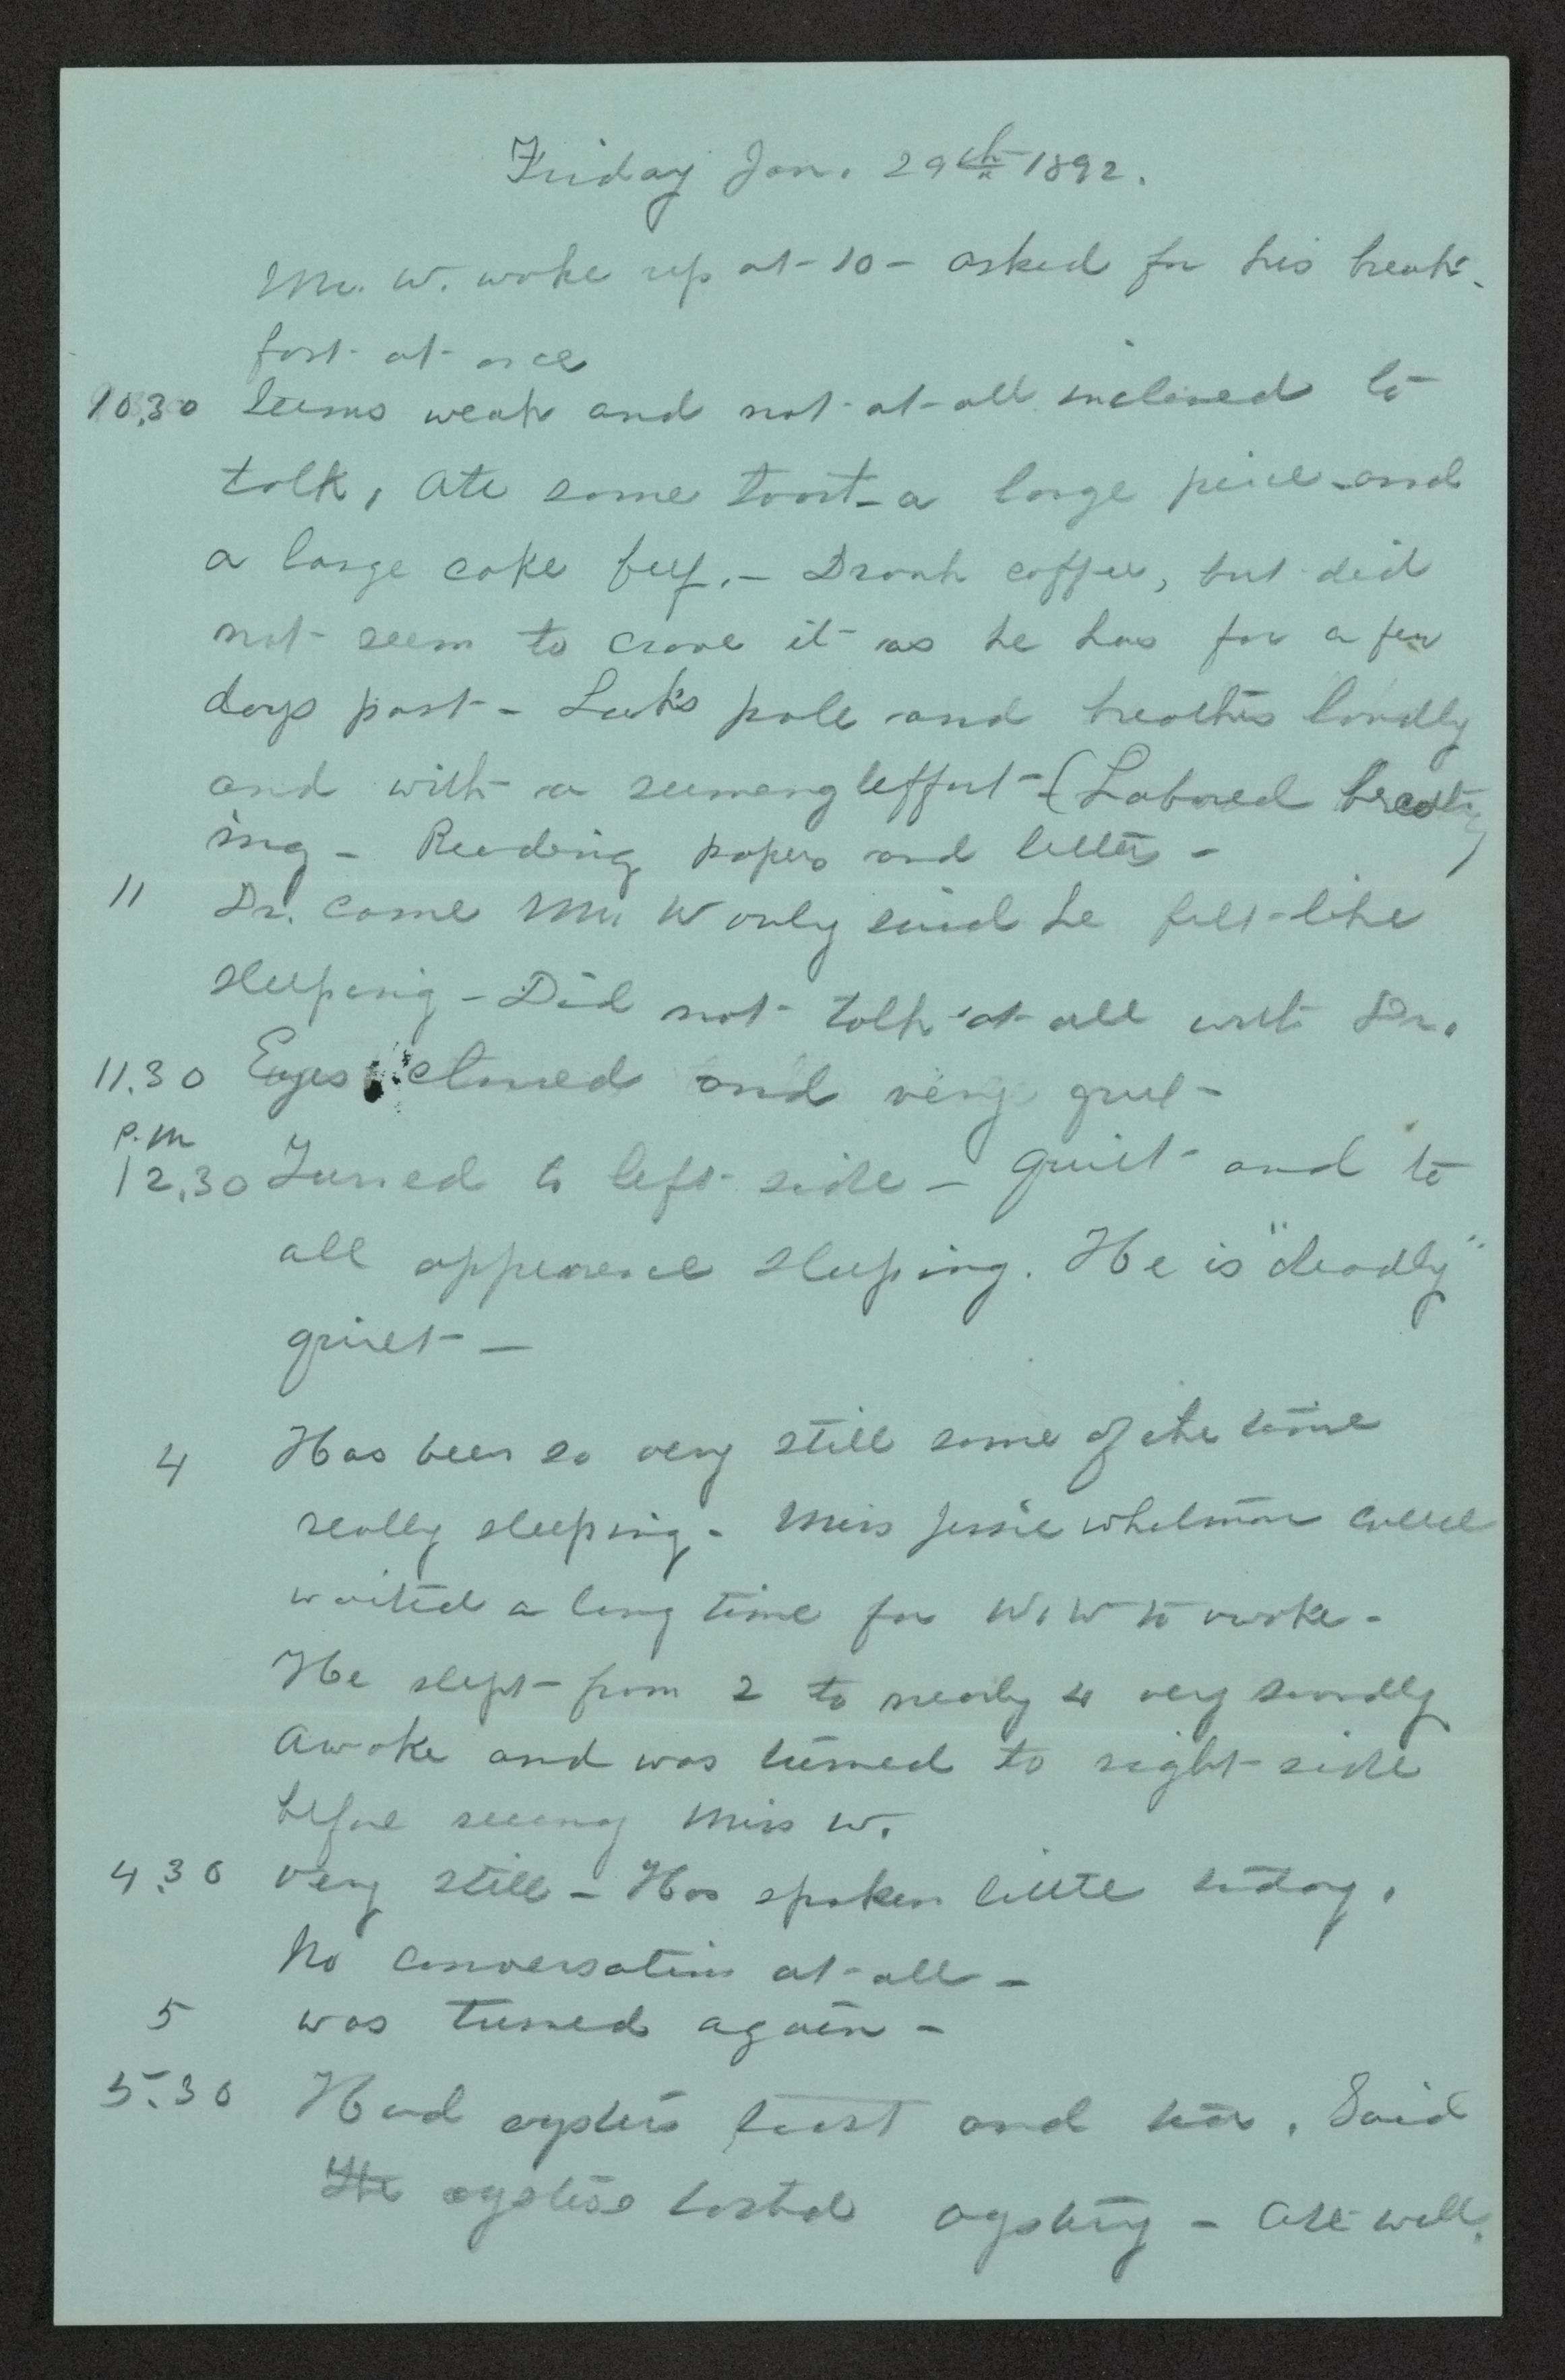 Friday Jan. 29th 1892.
Mr. W. woke up at 10 - asked for his break-
fast at once
10.30 Seems weak and not at all inclined to
talk, ate some toast - a large peice and
a large cake beef. - Drank coffee, but did
not seem to crave it as he has for a few
days past - Looks pale and breathes loudly
and with a seeming effort - (Labored breath
ing - Reading papers and letters - )
11 Dr. came Mr. W only said he felt like
sleeping - Did not talk at all with Dr.
11.30 Eyes closed and very quiet -
P.M
12.30 Turned to left side - quiet and to
all appearence sleeping. He is "deadly"
quiet -
4 Has been so very still some of the time
really sleeping - Miss Jessie Whitman called
waited a long time for W. W to awake -
He slept from 2 to nearly 4 very soundly
awoke and was turned to right side
before seeing Miss W.
4.30 very still - Has spoken little today.
No conversation at all -
5 was turned again -
5.30 Had oysters toast and tea. Said
the oysters tasted oystery - ate well.